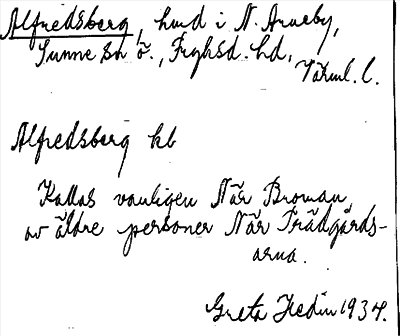 Alfredsberg, hmd i N. Arneby,
Sunne sn ö., Fryksd. hd,
Värml. l.
Alfredsberg kb
Kallas vanligen När Broman,
av äldre personer När Trädgårds-
arna.
Greta Hedin 1934.